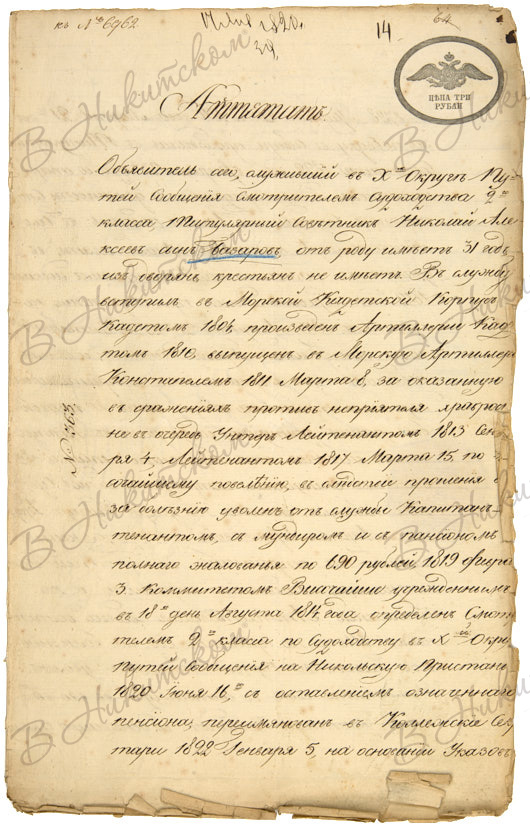 къ № 6962
1820.
14
64
ЦѢНА ТРИ
РУБЛИ
Аттестатъ.
Объявитель сего, служившій въ X.мъ Округѣ Пу-
тей Сообщенія Смотрителемъ Судоходства 2го
класса Титулярный Совѣтникъ Николай Але-
ксеевъ сынъ отъ роду имѣетъ 31 годъ,
изъ дворянъ крестьянъ не имѣетъ. Въ службу
вступилъ въ Морской Кадетской Корпусъ
Кадетомъ 1804, произведенъ Артиллеріи Каде-
томъ 1810, выпущенъ въ Морскую Артиллер
Констапелемъ 1811 Марта 8, за оказанную
въ сраженіяхъ противъ непріятеля храброс
не въ очередь Унтеръ Лейтенантомъ 1813 Сен
ря 4, Лейтенантомъ 1817 Марта 15, по
сочайшему повелѣнію, въ слѣдствіе прошенія
за болѣзнію уволенъ отъ службы Капитанъ-
тенантомъ, съ мундиромъ и съ пансіономъ
полнаго жалованья по 690 рублей 1819
3. Коммитетомъ Высочайше учрежденнымъ
въ 18й день Августа 1814 года опредѣленъ Смот
телемъ 2го класса по Судоходству въ X.ой Окру
Путей Сообщенія на Никольскую Пристань
1820 Іюня 16,го съ оставленіемъ означеннаго
пенсіона, переименованъ въ Коллежскіе Сек
тари 1822 Генваря 5, на основаніи Указовъ
В Никитском